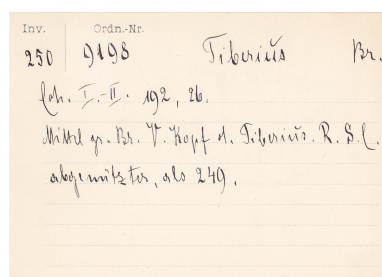 Inv. Ordn.-Nr.
250 9198 Tiberius Br.
Coh. I.-II. 192, 26.
Mittel gr. Br. V. Kopf d. Tiberius. R. S. C.
abgenützter, als 249.